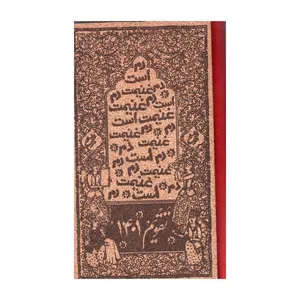 است
دم غنیمت دم
است دم غنیمت
غنیمت است
دم غنیمت
دم غنیمت
دم است دم
غنیمت
دم غنیمت
است دم
تقویم ۱۴۰۱